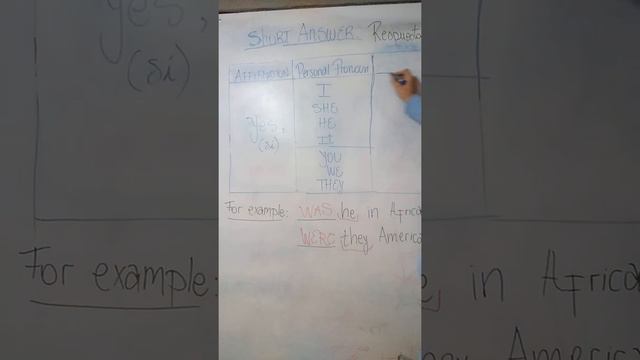 SHORT ANSWER. Respuesta
AFFIRMATION Personal Pronoun
Yes, (si)
I
SHE
HE
It
YOU
WE
THEY
For example: WAS he, in Africa
WERE they America